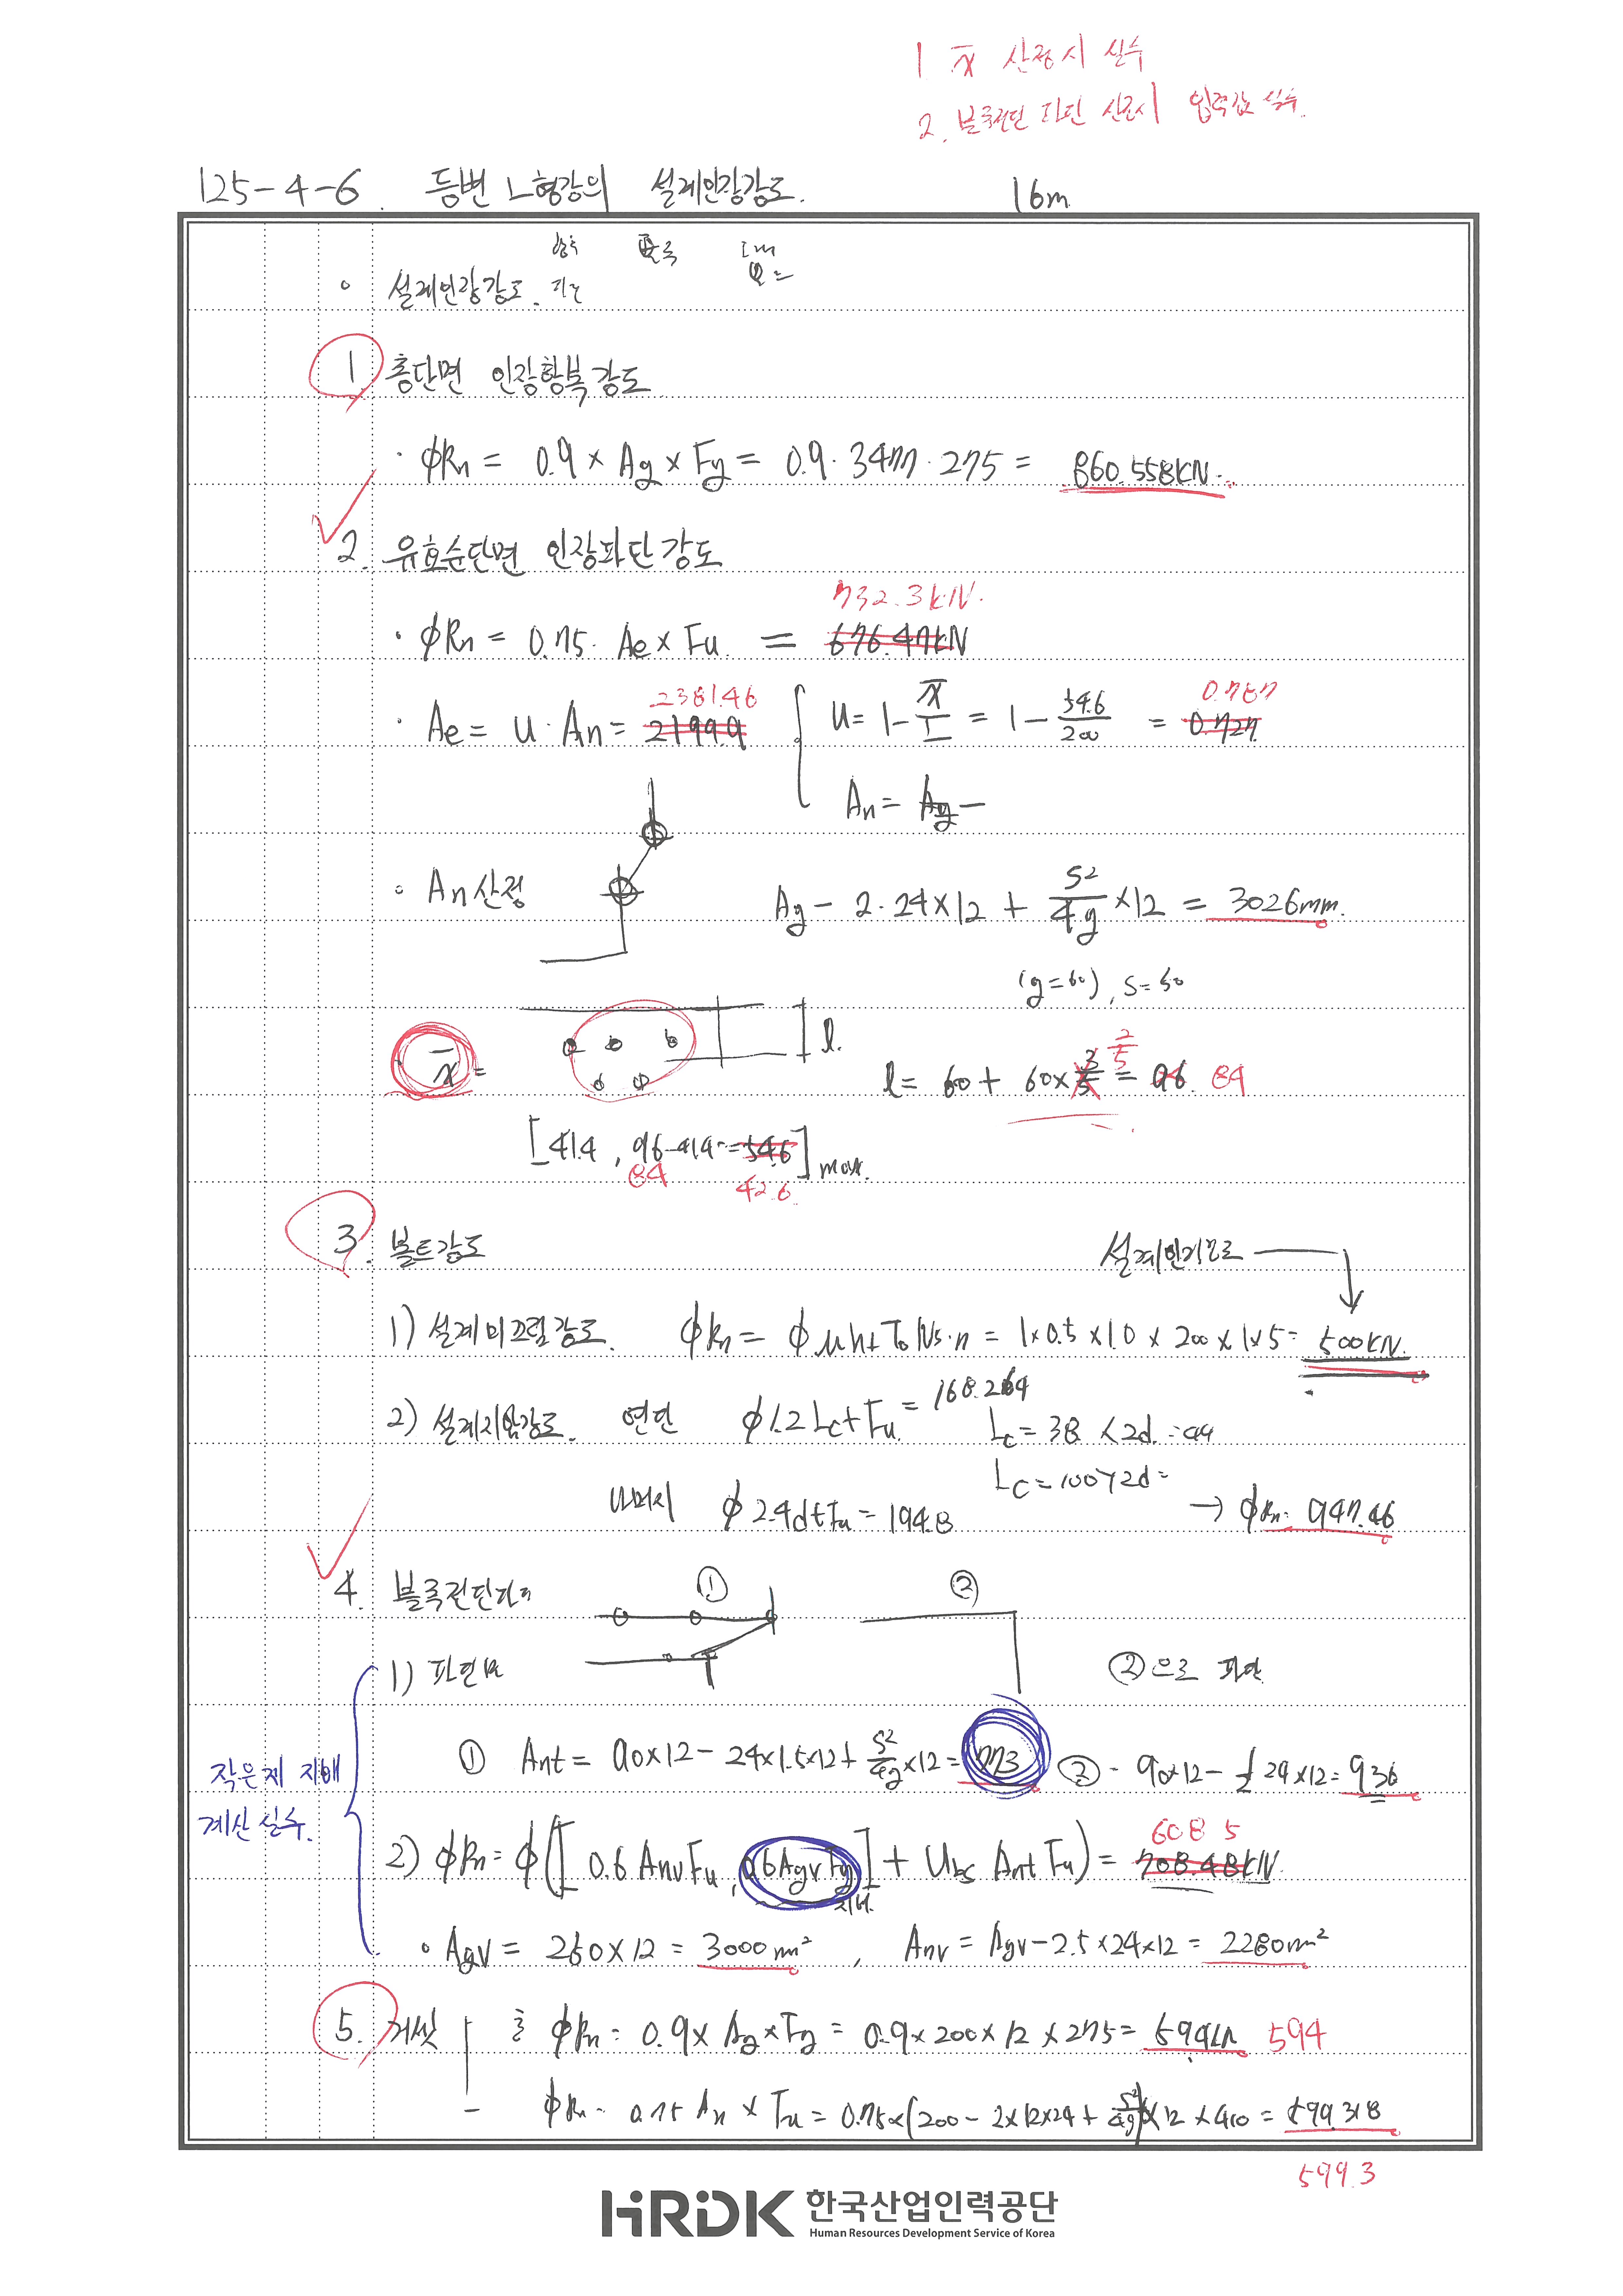 1 x̄ 산정시 실수
2. 블록전단 파단 산정시 입력값 실수.
125-4-6. 등변 ㄴ형강의 설계인장강도. 16m
블록
◦ 설계인장강도.
1. 총단면 인장항복강도
· ϕRn = 0.9 × Ag × Fy = 0.9 · 3477 · 275 = 860.558kN.
2. 유효순단면 인장파단강도
732.3kN.
· ϕRn = 0.75 · Ae × Fu. = 676.47kN
2381.46
0.787
· Ae = U · An = 2199.9 U = 1 - x̄/L = 1 - 54.6/200 = 0.727
An = Ag -
◦ An 산정 Ag - 2·24×12 + S²/4g ×12 = 3026mm.
(g=60), S=50
x̄ = l. l = 60 + 60× 3/5 = 96. 2/5 84
[41.4, 96-41.4 = 54.6] max.
84 42.6
3. 볼트강도 설계인장강도
1) 설계미끄럼강도. ϕRn = ϕ μ hf To Ns · n = 1×0.5×1.0×200×1×5 = 500kN.
2) 설계지압강도. 연단 ϕ1.2 Lc t Fu = 168.264 Lc = 38 < 2d. = 44
Lc = 100 > 2d =
나머지 ϕ 2.4dtFu = 194.8 → ϕRn = 947.46
4. 블록전단파괴 ① ②
1) 파단면 ②으로 파단
① Ant = 90×12 - 24×1.5×12 + S²/4g ×12 = 773 ② · 90×12 - ½ 24×12 = 936
작은게 지배
계산 실수.
608.5
2) ϕRn = ϕ([0.6 Anv Fu, 0.6 Agv Fy] + Ubs Ant Fu) = 708.48kN.
지배.
◦ Agv = 250×12 = 3000mm², Anv = Agv - 2.5×24×12 = 2280mm²
5. 거싯 총 ϕRn = 0.9× Ag × Fy = 0.9×200×12×275 = 594kN 594
- ϕRn = 0.75 An × Fu = 0.75×(200 - 2×12×24 + S²/4g)×12×410 = 599.318
599.3
HRDK 한국산업인력공단
Human Resources Development Service of Korea